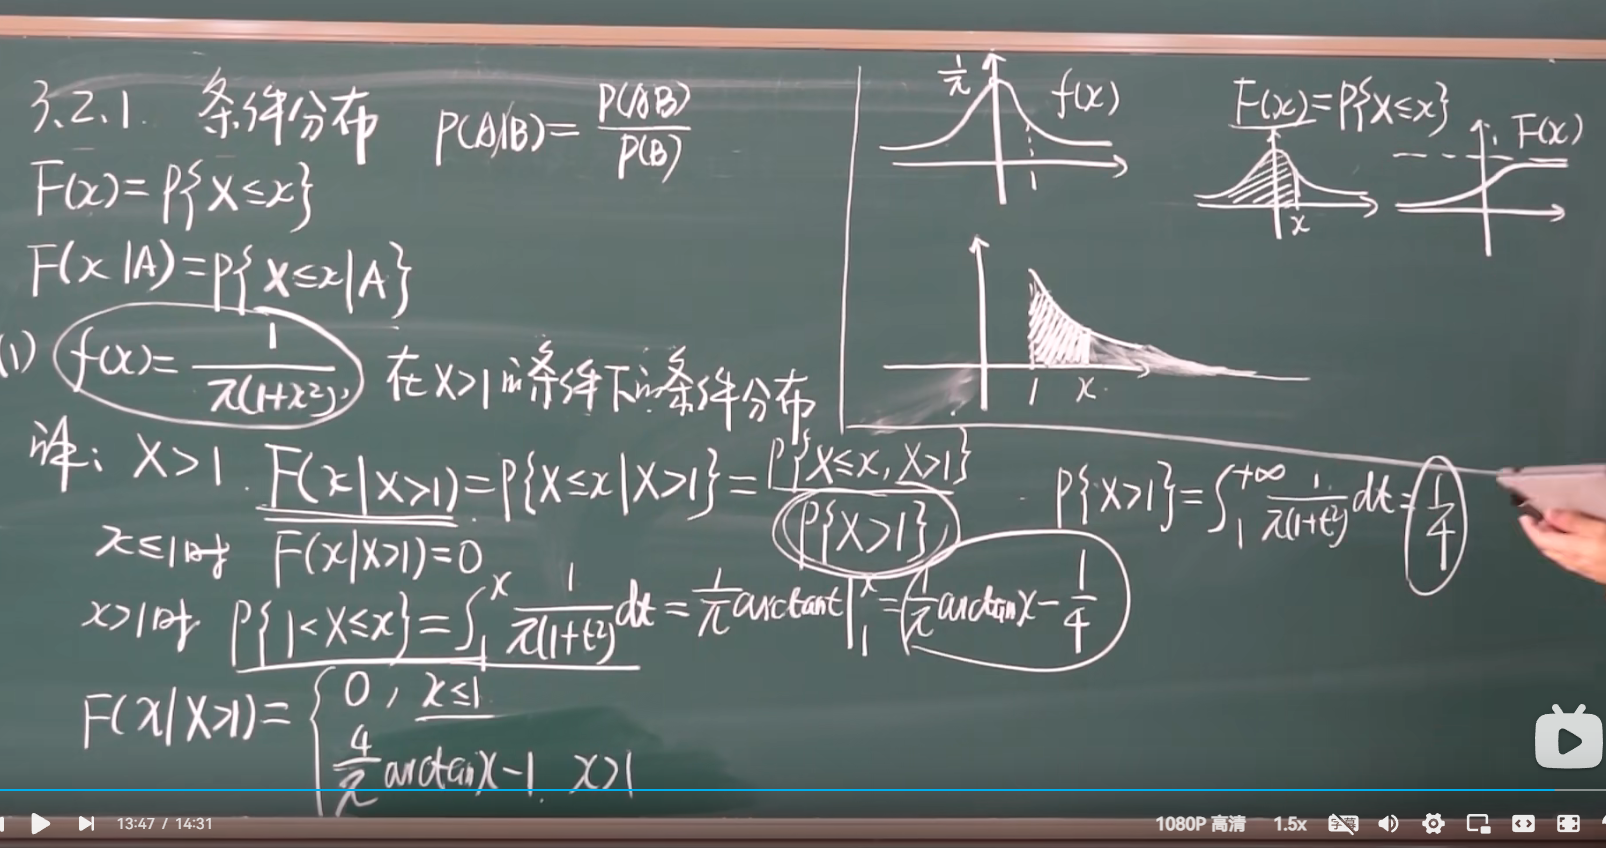 3.2.1. 条件分布 P(A|B)=P(AB)/P(B)
F(x)=P{X≤x}
F(x|A)=P{X≤x|A}
(1) f(x)=1/π(1+x²), 在X>1的条件下的条件分布
解: X>1. F(x|X>1)=P{X≤x|X>1}=P{X≤x, X>1}/P{X>1}
x≤1时 F(x|X>1)=0
x>1时 P{1<X≤x}=∫₁ˣ 1/π(1+t²) dt=1/π arctant|₁ˣ=1/π arctanx-1/4
F(x|X>1)={0, x≤1
4/π arctanx-1, x>1
1/π f(x)
1
F(x)=P{X≤x}
x
F(x)
1 x
P{X>1}=∫₁^+∞ 1/π(1+t²) dt=1/4
13:47 / 14:31
1080P 高清 1.5x 字幕